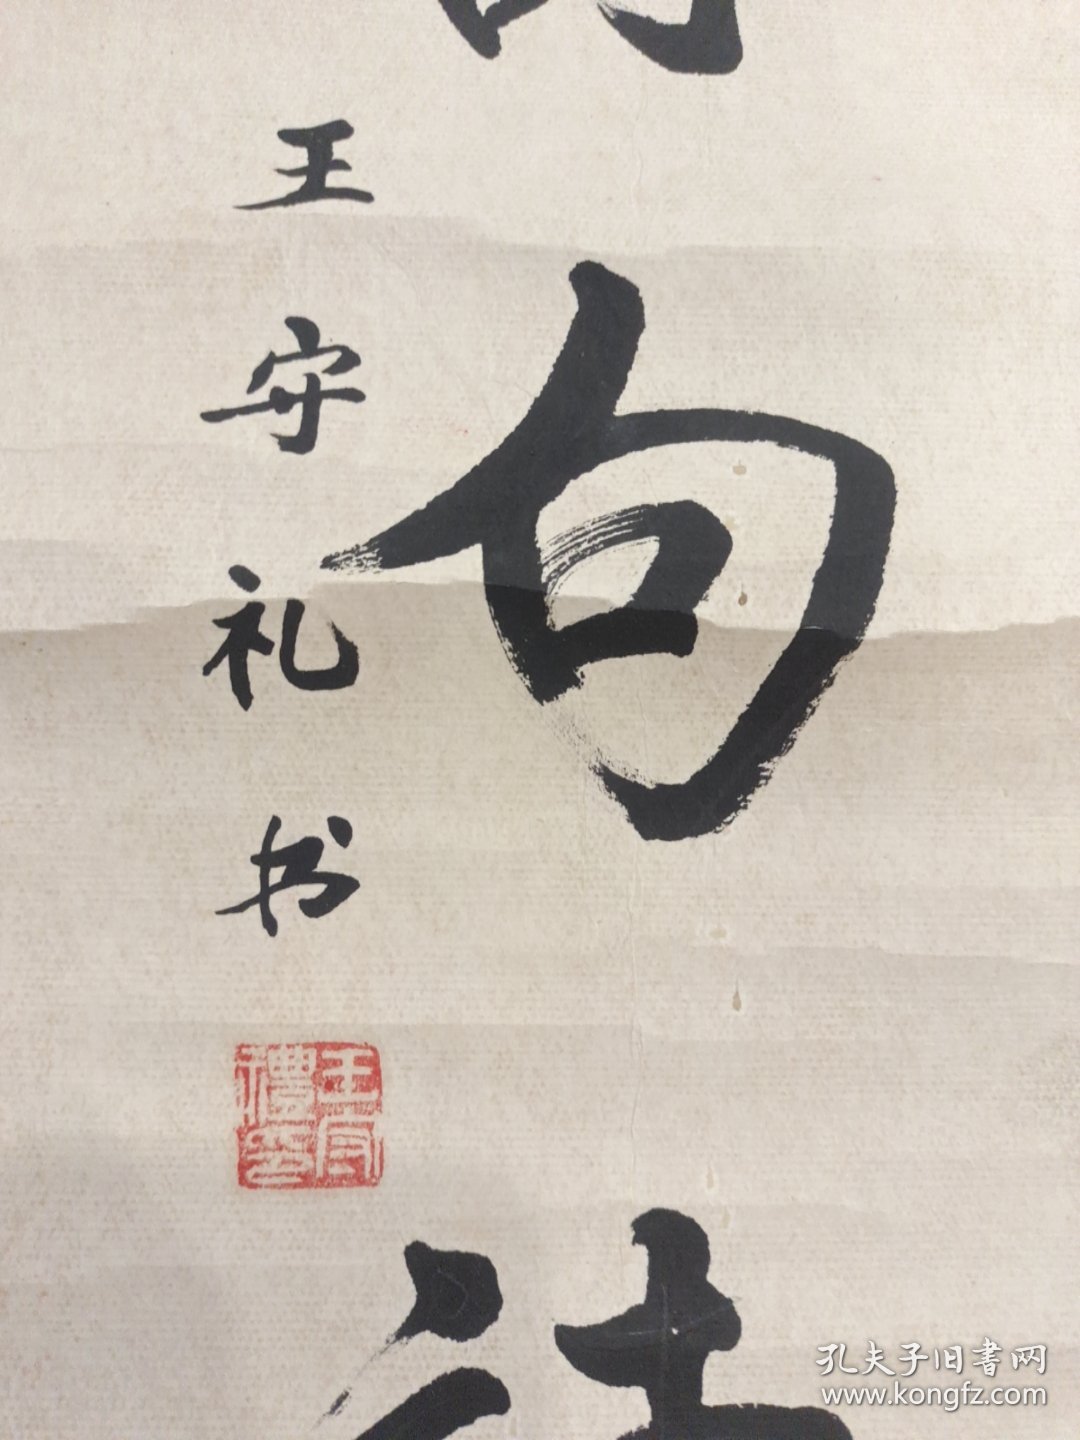 句
王守礼书
王守禮印
孔夫子旧書网
www.kongfz.com